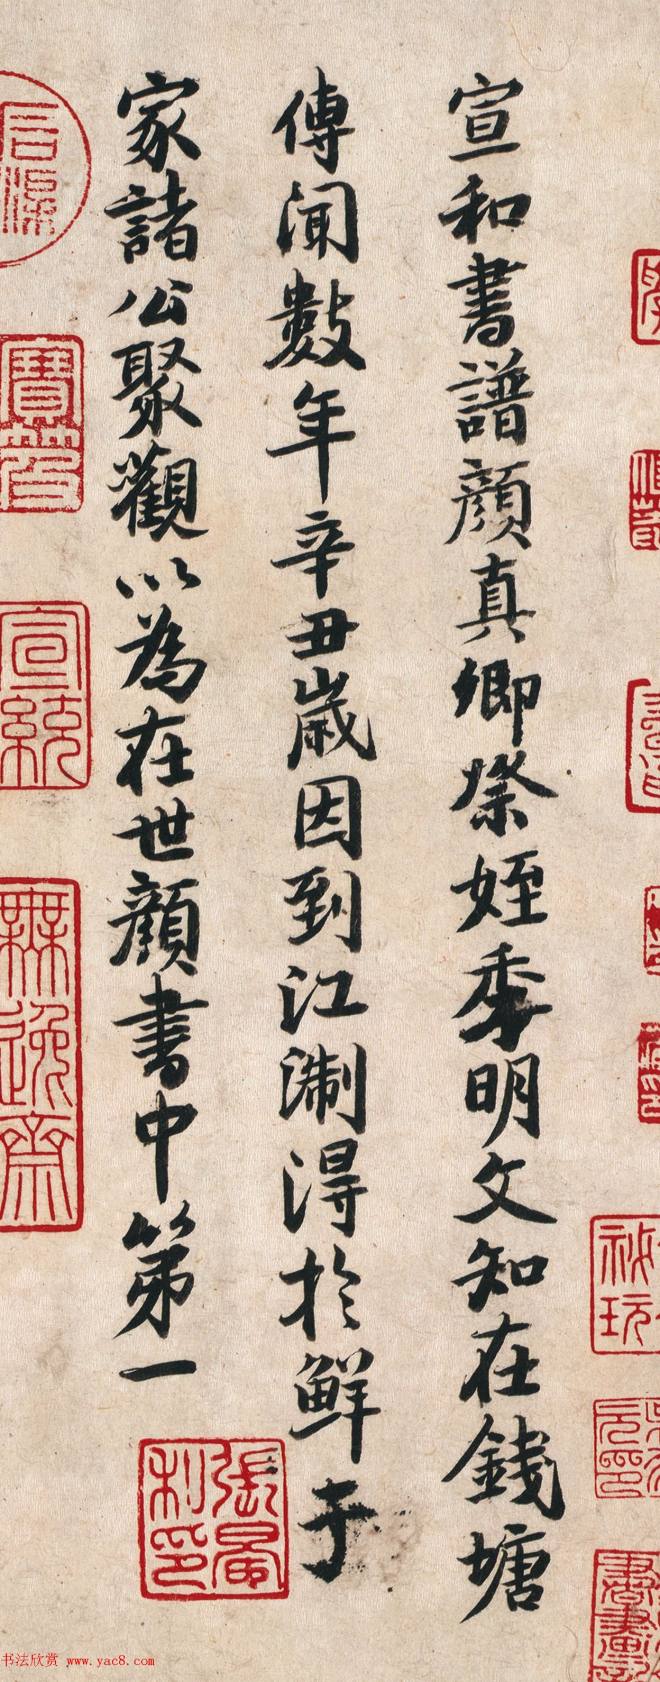 宣和書譜顔真卿祭姪季明文知在錢塘
傳聞數年辛丑歲因到江淛得於鮮于
家諸公聚觀以為在世顔書中第一
張晏私印
宣統
無逸齋
书法欣赏 www.yac8.com